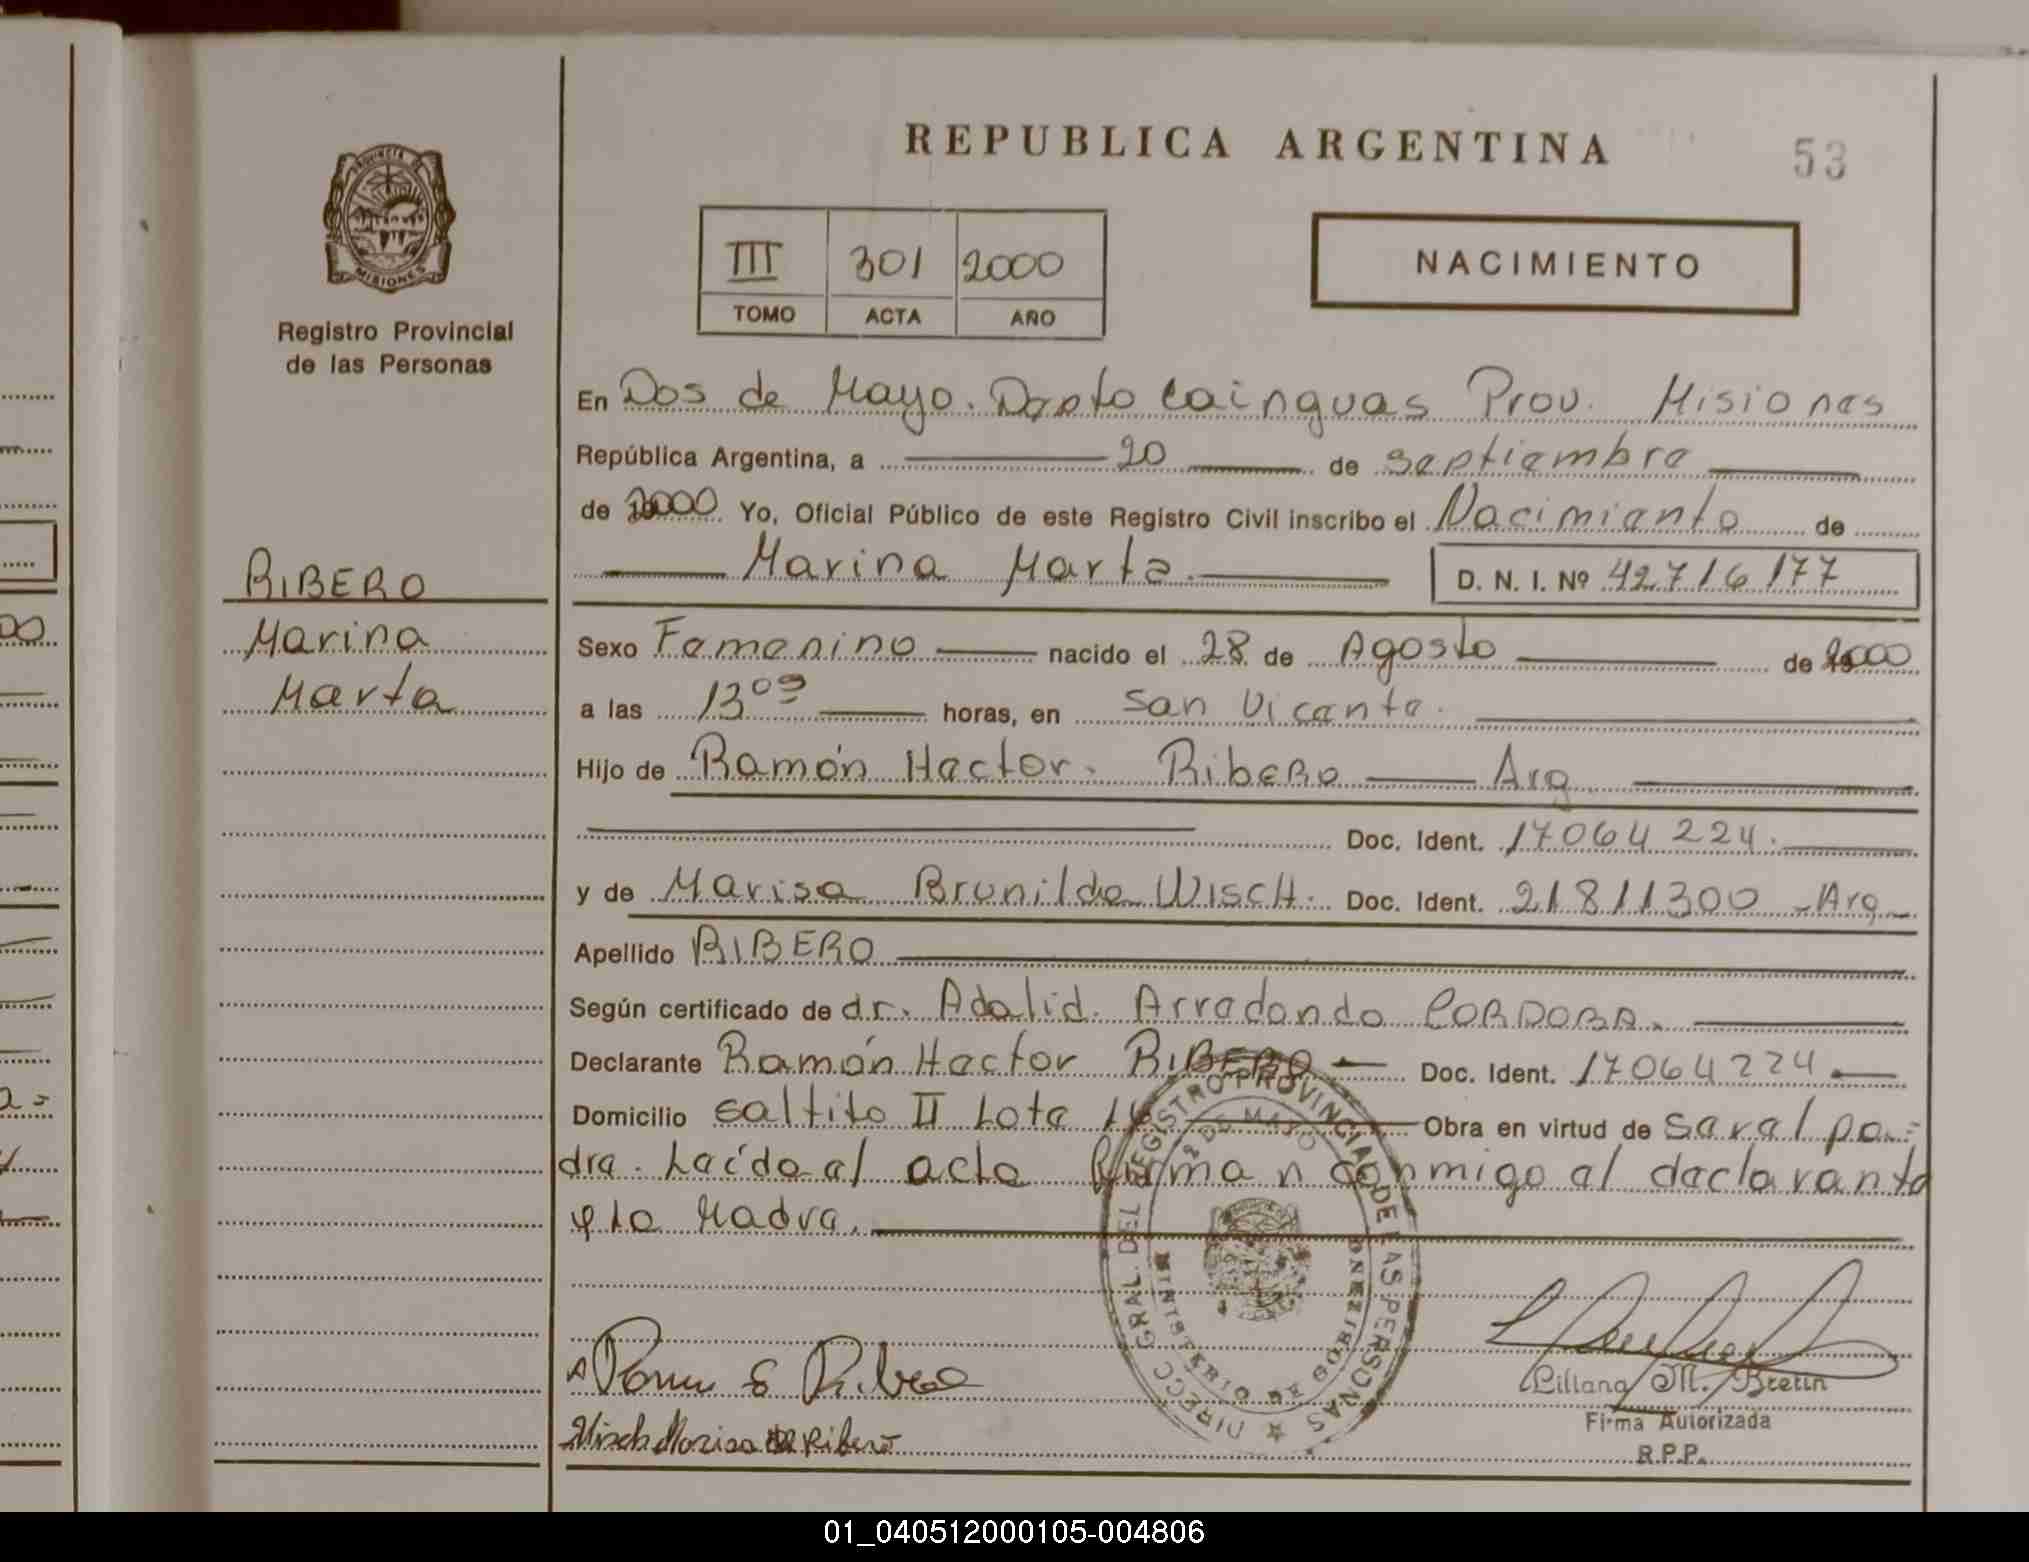 REPUBLICA ARGENTINA
53
PROVINCIA DE
MISIONES
Registro Provincial
de las Personas
III 301 2000
TOMO ACTA AÑO
NACIMIENTO
En Dos de Mayo. Dpto Cainguas Prov. Misiones
República Argentina, a 20 de septiembre
de 2000 Yo, Oficial Público de este Registro Civil inscribo el Nacimiento de
Marina Marta D. N. I. Nº 42716177
RIBERO
Marina
Marta
Sexo Femenino nacido el 28 de Agosto de 2000
a las 13 09 horas, en San Vicente.
Hijo de Ramón Hector. Ribero Arg
Doc. Ident. 17064224.
y de Marisa Brunilda WISCH. Doc. Ident. 21811300 - Arg -
Apellido RIBERO
Según certificado de dr. Adalid. Arredondo CORDOBA.
Declarante Ramón Hector RIBERO - Doc. Ident. 17064224 -
Domicilio Saltito II Lote Obra en virtud de ser el pa=
dre. Leída el acta firman conmigo el declarante
y la Madre.
DIRECC. GRAL. DEL REGISTRO PROVINCIAL DE LAS PERSONAS
2 DE MAYO
MINISTERIO DE GOBIERNO
Wisch Marisa de Ribero
Liliana M. Bretin
Firma Autorizada
R.P.P.
01_040512000105-004806